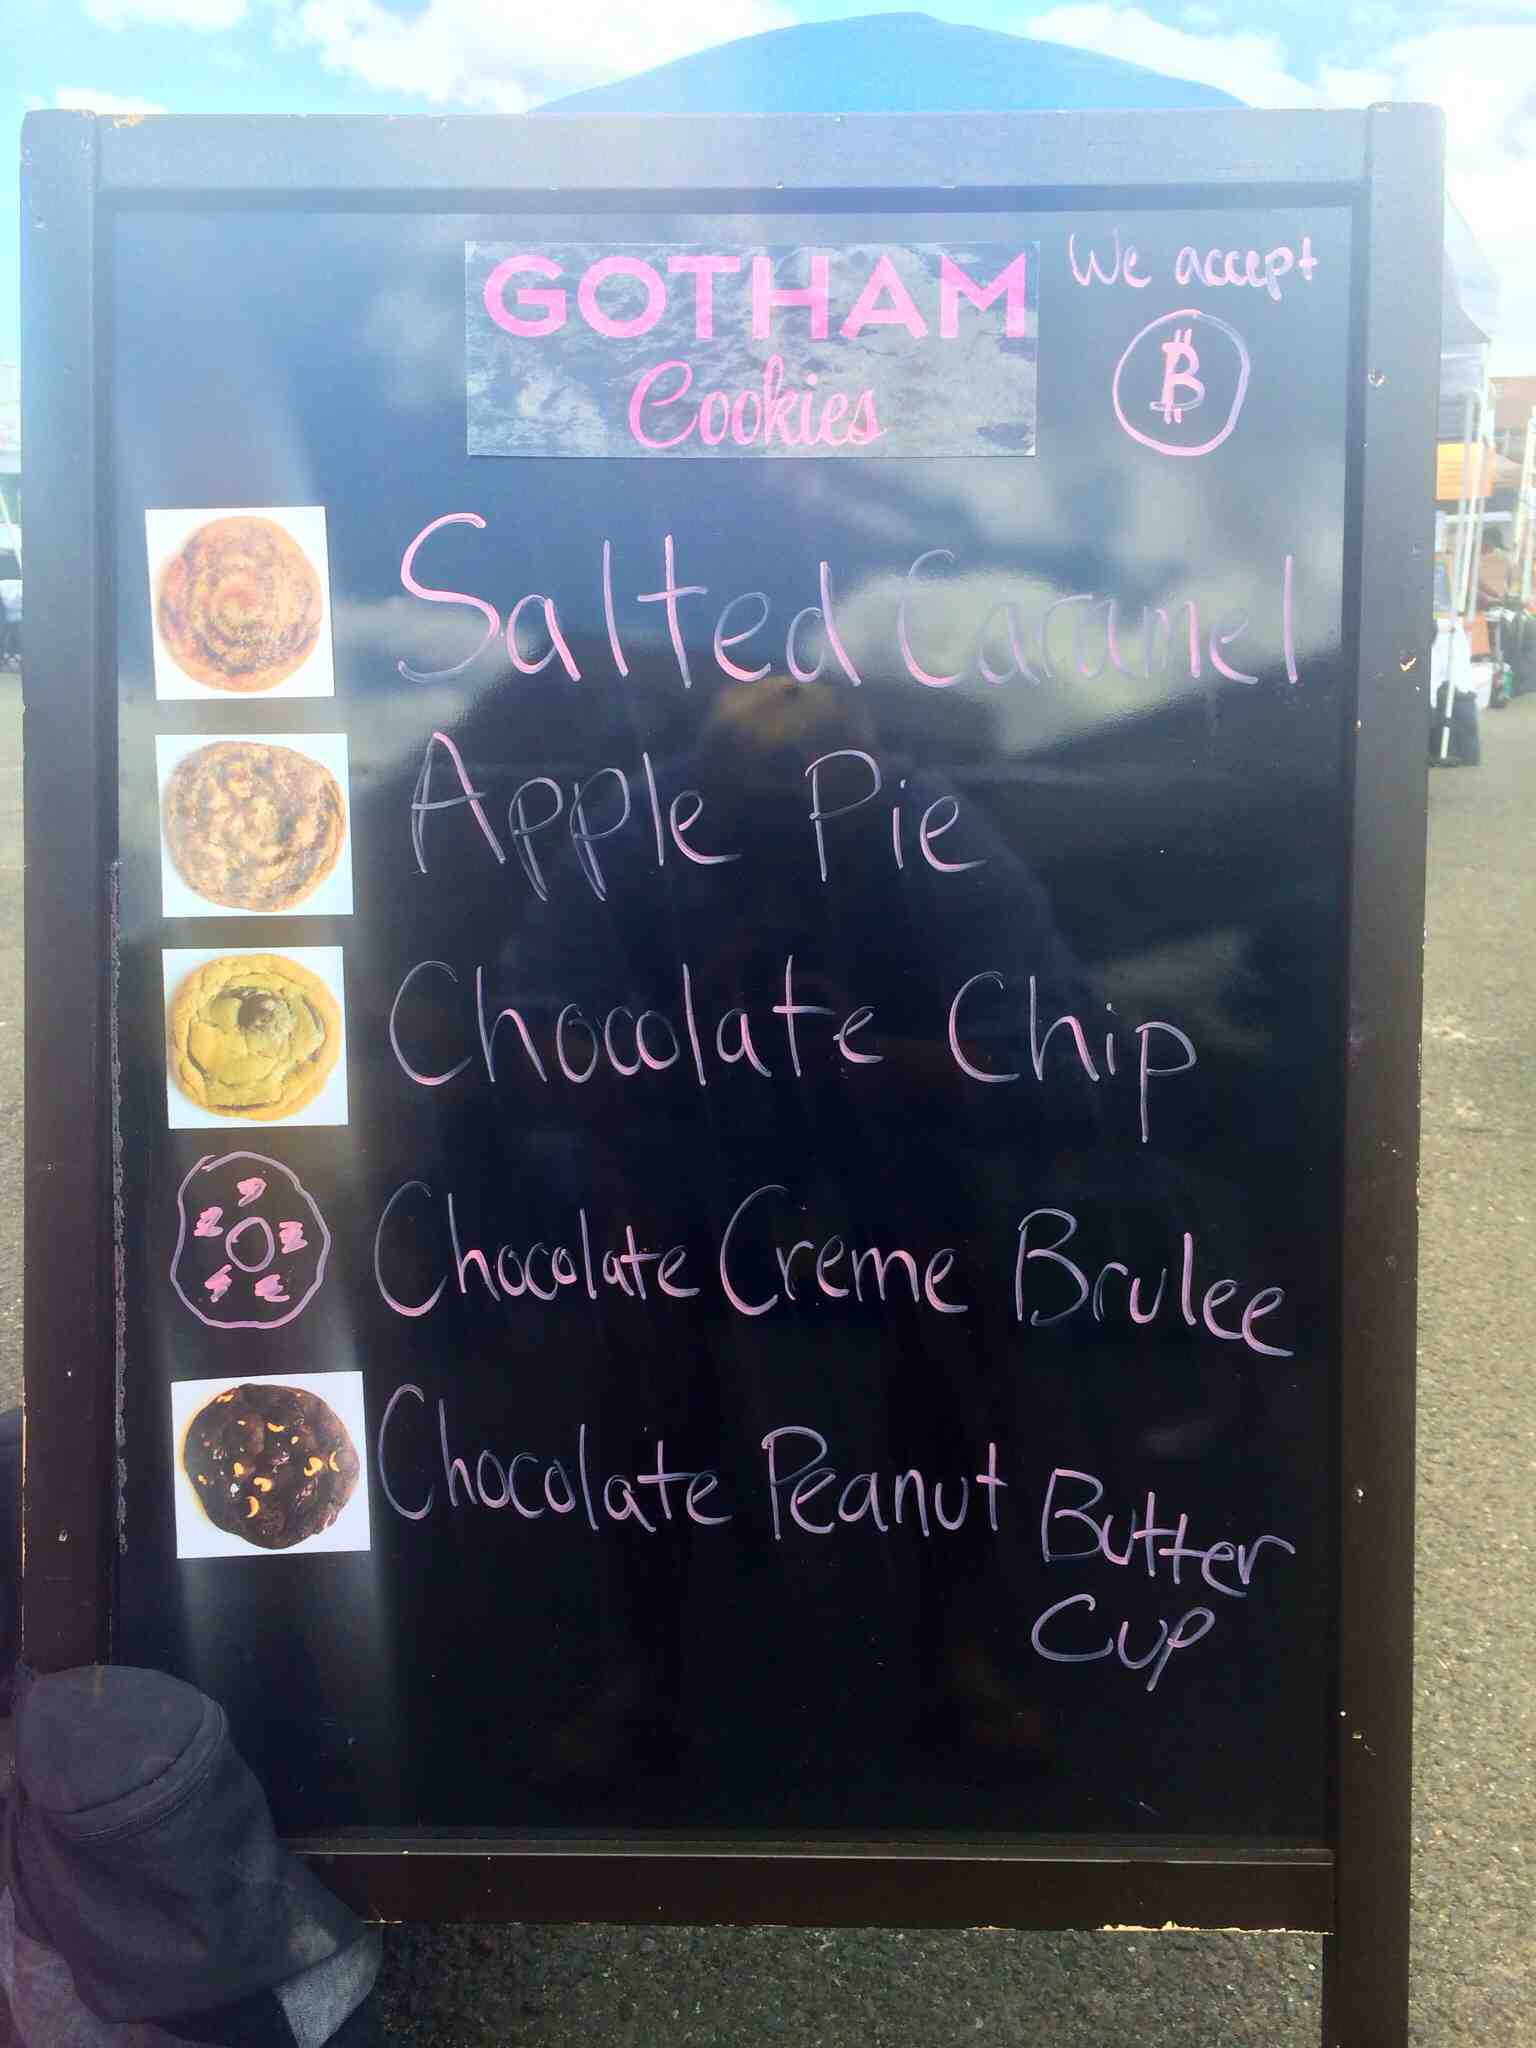 GOTHAM
Cookies
We accept
₿
Salted Caramel
Apple Pie
Chocolate Chip
Chocolate Creme Brulee
Chocolate Peanut Butter
Cup